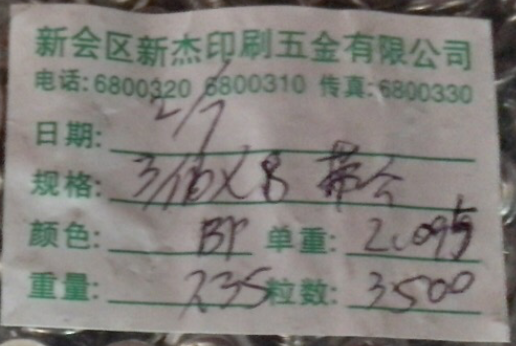 新会区新杰印刷五金有限公司
电话: 6800320 6800310 传真: 6800330
日期: 2/7
规格: 3/16X8
颜色: BP 单重:
重量: 235 粒数: 3500